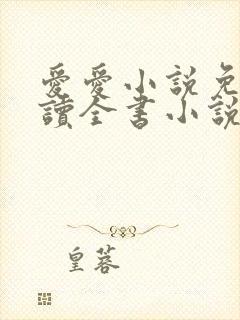 愛愛小説免
讀全書小說
皇蓉